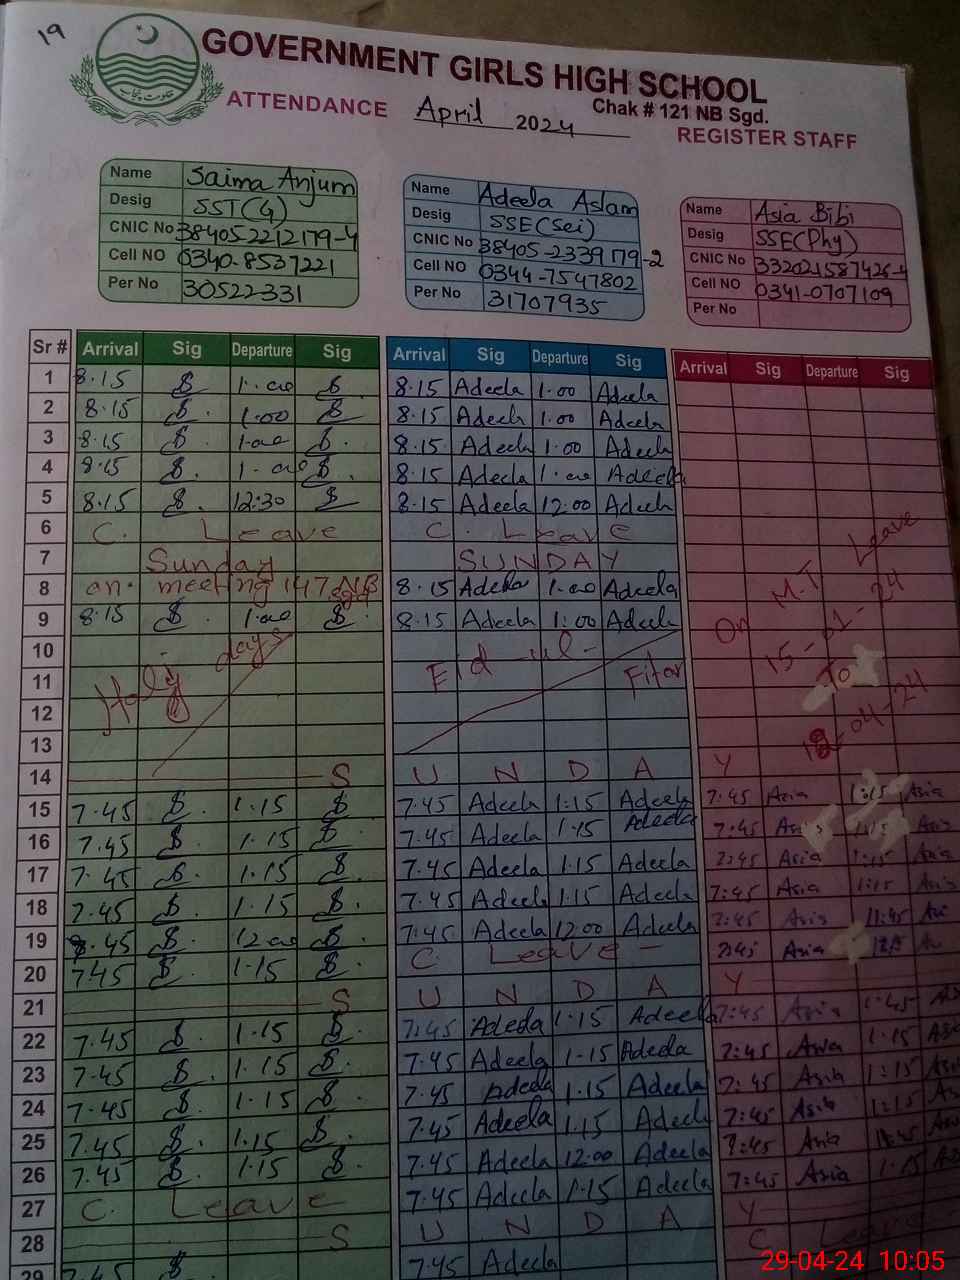 19
GOVERNMENT GIRLS HIGH SCHOOL
Chak # 121 NB Sgd.
ATTENDANCE April 2024 REGISTER STAFF
حکومت پنجاب
Name Saima Anjum
Desig SST(G)
CNIC No 38405-2212179-4
Cell NO 0340-8537221
Per No 30522331
Name Adeela Aslam
Desig SSE(Sci)
CNIC No 38405-2339179-2
Cell NO 0344-7547802
Per No 31707935
Name Asia Bibi
Desig SSE(Phy)
CNIC No 332021587426-4
Cell NO 0341-0707109
Per No
Sr # Arrival Sig Departure Sig Arrival Sig Departure Sig Arrival Sig Departure Sig
1 8.15 1.00 8.15 Adeela 1.00 Adeela
2 8.15 1.00 8.15 Adeela 1.00 Adeela
3 8.15 1.00 8.15 Adeela 1.00 Adeela
4 8.15 1.00 8.15 Adeela 1.00 Adeela
5 8.15 12:30 8.15 Adeela 12.00 Adeela
6 C. Leave C. Leave
7 Sunday SUNDAY
8 on meeting 147 NB 8.15 Adeela 1.00 Adeela
9 8.15 1.00 8.15 Adeela 1:00 Adeela
On M.T Leave
15-01-24
To
18-04-24
10 Holy days Eid ul-
11 Fitar
12
13
14 S U N D A Y
15 7.45 1.15 7.45 Adeela 1:15 Adeela 7:45 Asia 1:15 Asia
16 7.45 1.15 7.45 Adeela 1.15 Adeela 7:45 Asia
17 7.45 1.15 7.45 Adeela 1.15 Adeela 7:45 Asia 1:15 Asia
18 7.45 1.15 7.45 Adeela 1.15 Adeela 7:45 Asia 1:15 Asia
19 8.45 12.00 7.45 Adeela 12.00 Adeela 7:45 Asia 11:45
20 7.45 1.15 C. Leave 7:45 Asia
21 S U N D A Y
22 7.45 1.15 7:45 Adeela 1.15 Adeela 7:45 Asia 1:45
23 7.45 1.15 7.45 Adeela 1.15 Adeela 7:45 Asia 1.15
24 7.45 1.15 7.45 Adeela 1.15 Adeela 7:45 Asia 1:15
25 7.45 1.15 7.45 Adeela 1.15 Adeela 7:45 Asia 1:15
26 7.45 1.15 7.45 Adeela 12:00 Adeela 7:45 Asia
27 C. Leave 7.45 Adeela 1.15 Adeela 7:45 Asia 1.15
28 S U N D A Y
29 7.45 7.45 Adeela C Leave
29-04-24 10:05